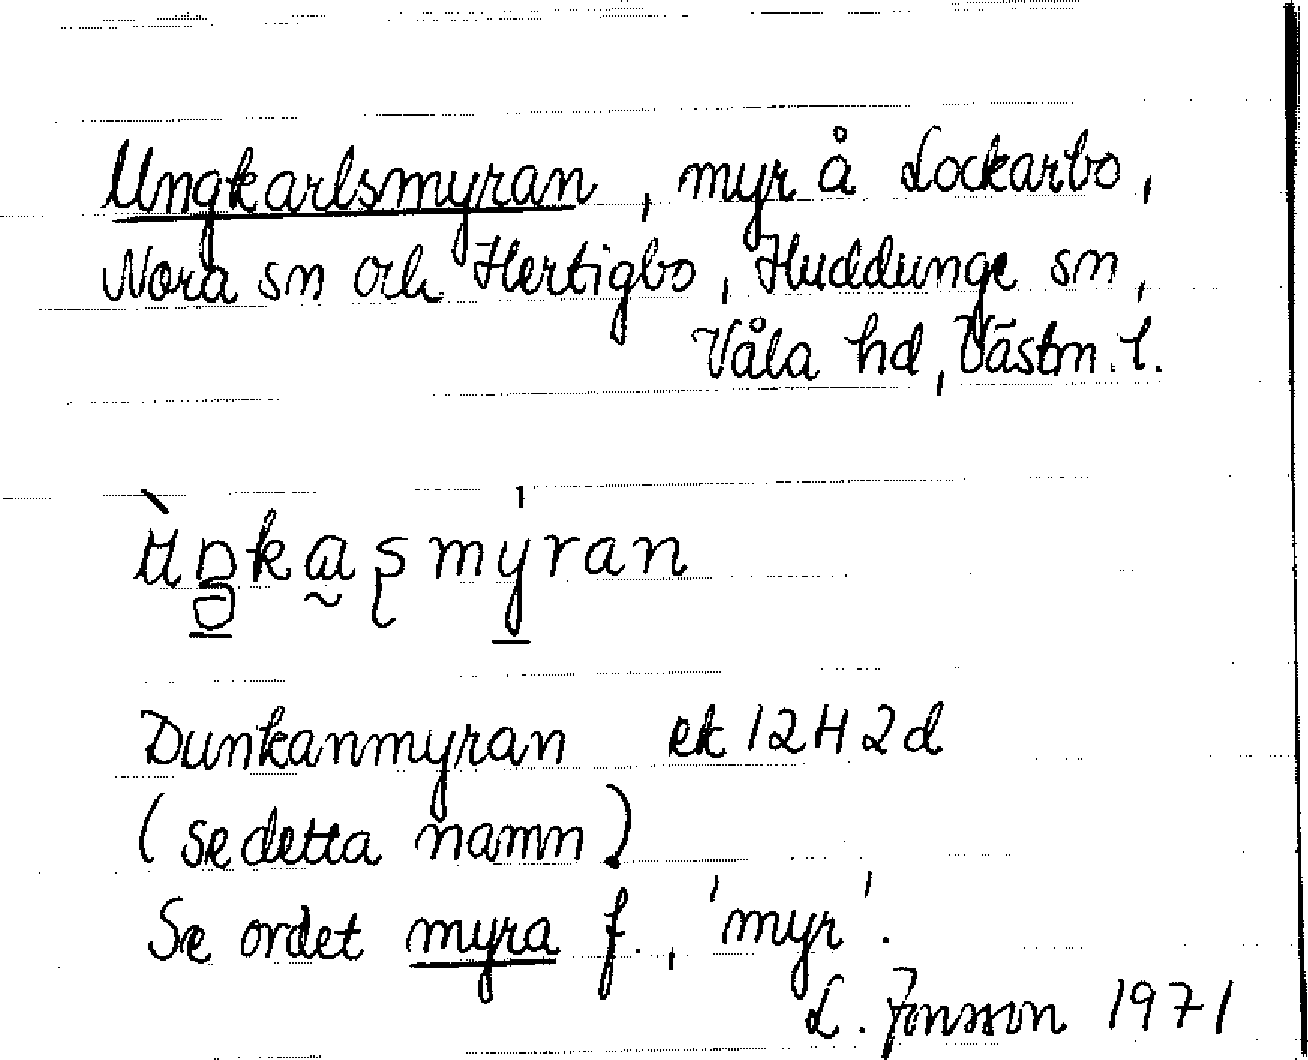 Ungkarlsmyran, myr å Lockarbo,
Nora sn och Hertigbo, Huddunge sn,
Våla hd, Västm. l.
Dunkanmyran ek 12H2d
(se detta namn)
Se ordet myra f., 'myr'.
L. Jonsson 1971